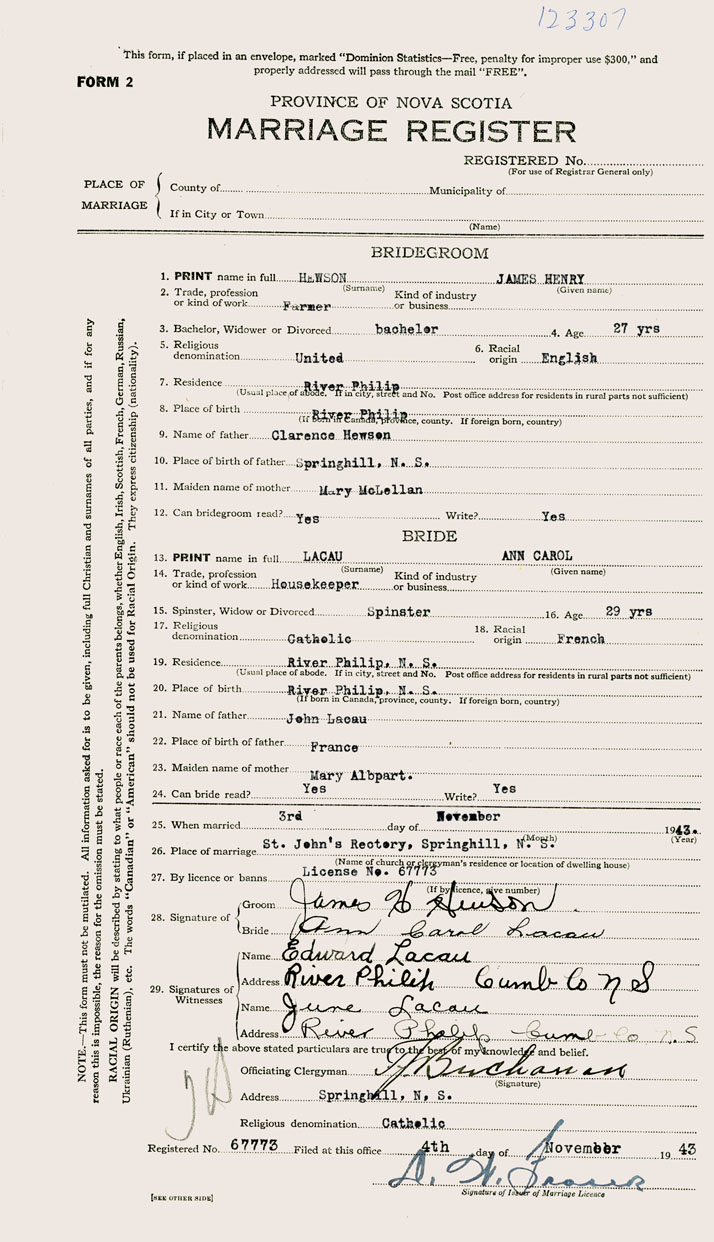 123307
This form, if placed in an envelope, marked "Dominion Statistics—Free, penalty for improper use $300," and
properly addressed will pass through the mail "FREE".
FORM 2
PROVINCE OF NOVA SCOTIA
MARRIAGE REGISTER
REGISTERED No.
(For use of Registrar General only)
PLACE OF MARRIAGE
County of Municipality of
If in City or Town
(Name)
BRIDEGROOM
1. PRINT name in full HEWSON JAMES HENRY
(Surname) (Given name)
2. Trade, profession or kind of work Farmer Kind of industry or business
3. Bachelor, Widower or Divorced bachelor 4. Age 27 yrs
5. Religious denomination United 6. Racial origin English
7. Residence River Philip
(Usual place of abode. If in city, street and No. Post office address for residents in rural parts not sufficient)
8. Place of birth River Philip
(If born in Canada, province, county. If foreign born, country)
9. Name of father Clarence Hewson
10. Place of birth of father Springhill, N. S.
11. Maiden name of mother Mary McLellan
12. Can bridegroom read? Yes Write? Yes
BRIDE
13. PRINT name in full LACAU ANN CAROL
(Surname) (Given name)
14. Trade, profession or kind of work Housekeeper Kind of industry or business
15. Spinster, Widow or Divorced Spinster 16. Age 29 yrs
17. Religious denomination Catholic 18. Racial origin French
19. Residence River Philip, N. S.
(Usual place of abode. If in city, street and No. Post office address for residents in rural parts not sufficient)
20. Place of birth River Philip, N. S.
(If born in Canada, province, county. If foreign born, country)
21. Name of father John Lacau
22. Place of birth of father France
23. Maiden name of mother Mary Albpart.
24. Can bride read? Yes Write? Yes
25. When married 3rd day of November 1943.
(Month) (Year)
26. Place of marriage St. John's Rectory, Springhill, N. S.
(Name of church or clergyman's residence or location of dwelling house)
27. By licence or banns License No. 67773
(If by licence, give number)
28. Signature of
Groom James H Hewson
Bride Ann Carol Lacau
29. Signatures of Witnesses
Name Edward Lacau
Address River Philip Cumb Co N S
Name June Lacau
Address River Philip Cumb Co N.S
I certify the above stated particulars are true to the best of my knowledge and belief.
Officiating Clergyman Buchanan
(Signature)
Address Springhill, N, S.
Religious denomination Catholic
Registered No. 67773 Filed at this office 4th day of November 1943
D. W. Fraser
Signature of Issuer of Marriage Licence
[SEE OTHER SIDE]
NOTE.—This form must not be mutilated. All information asked for is to be given, including full Christian and surnames of all parties, and if for any
reason this is impossible, the reason for the omission must be stated.
RACIAL ORIGIN will be described by stating to what people or race each of the parents belongs, whether English, Irish, Scottish, French, German, Russian,
Ukrainian (Ruthenian), etc. The words "Canadian" or "American" should not be used for Racial Origin. They express citizenship (nationality).